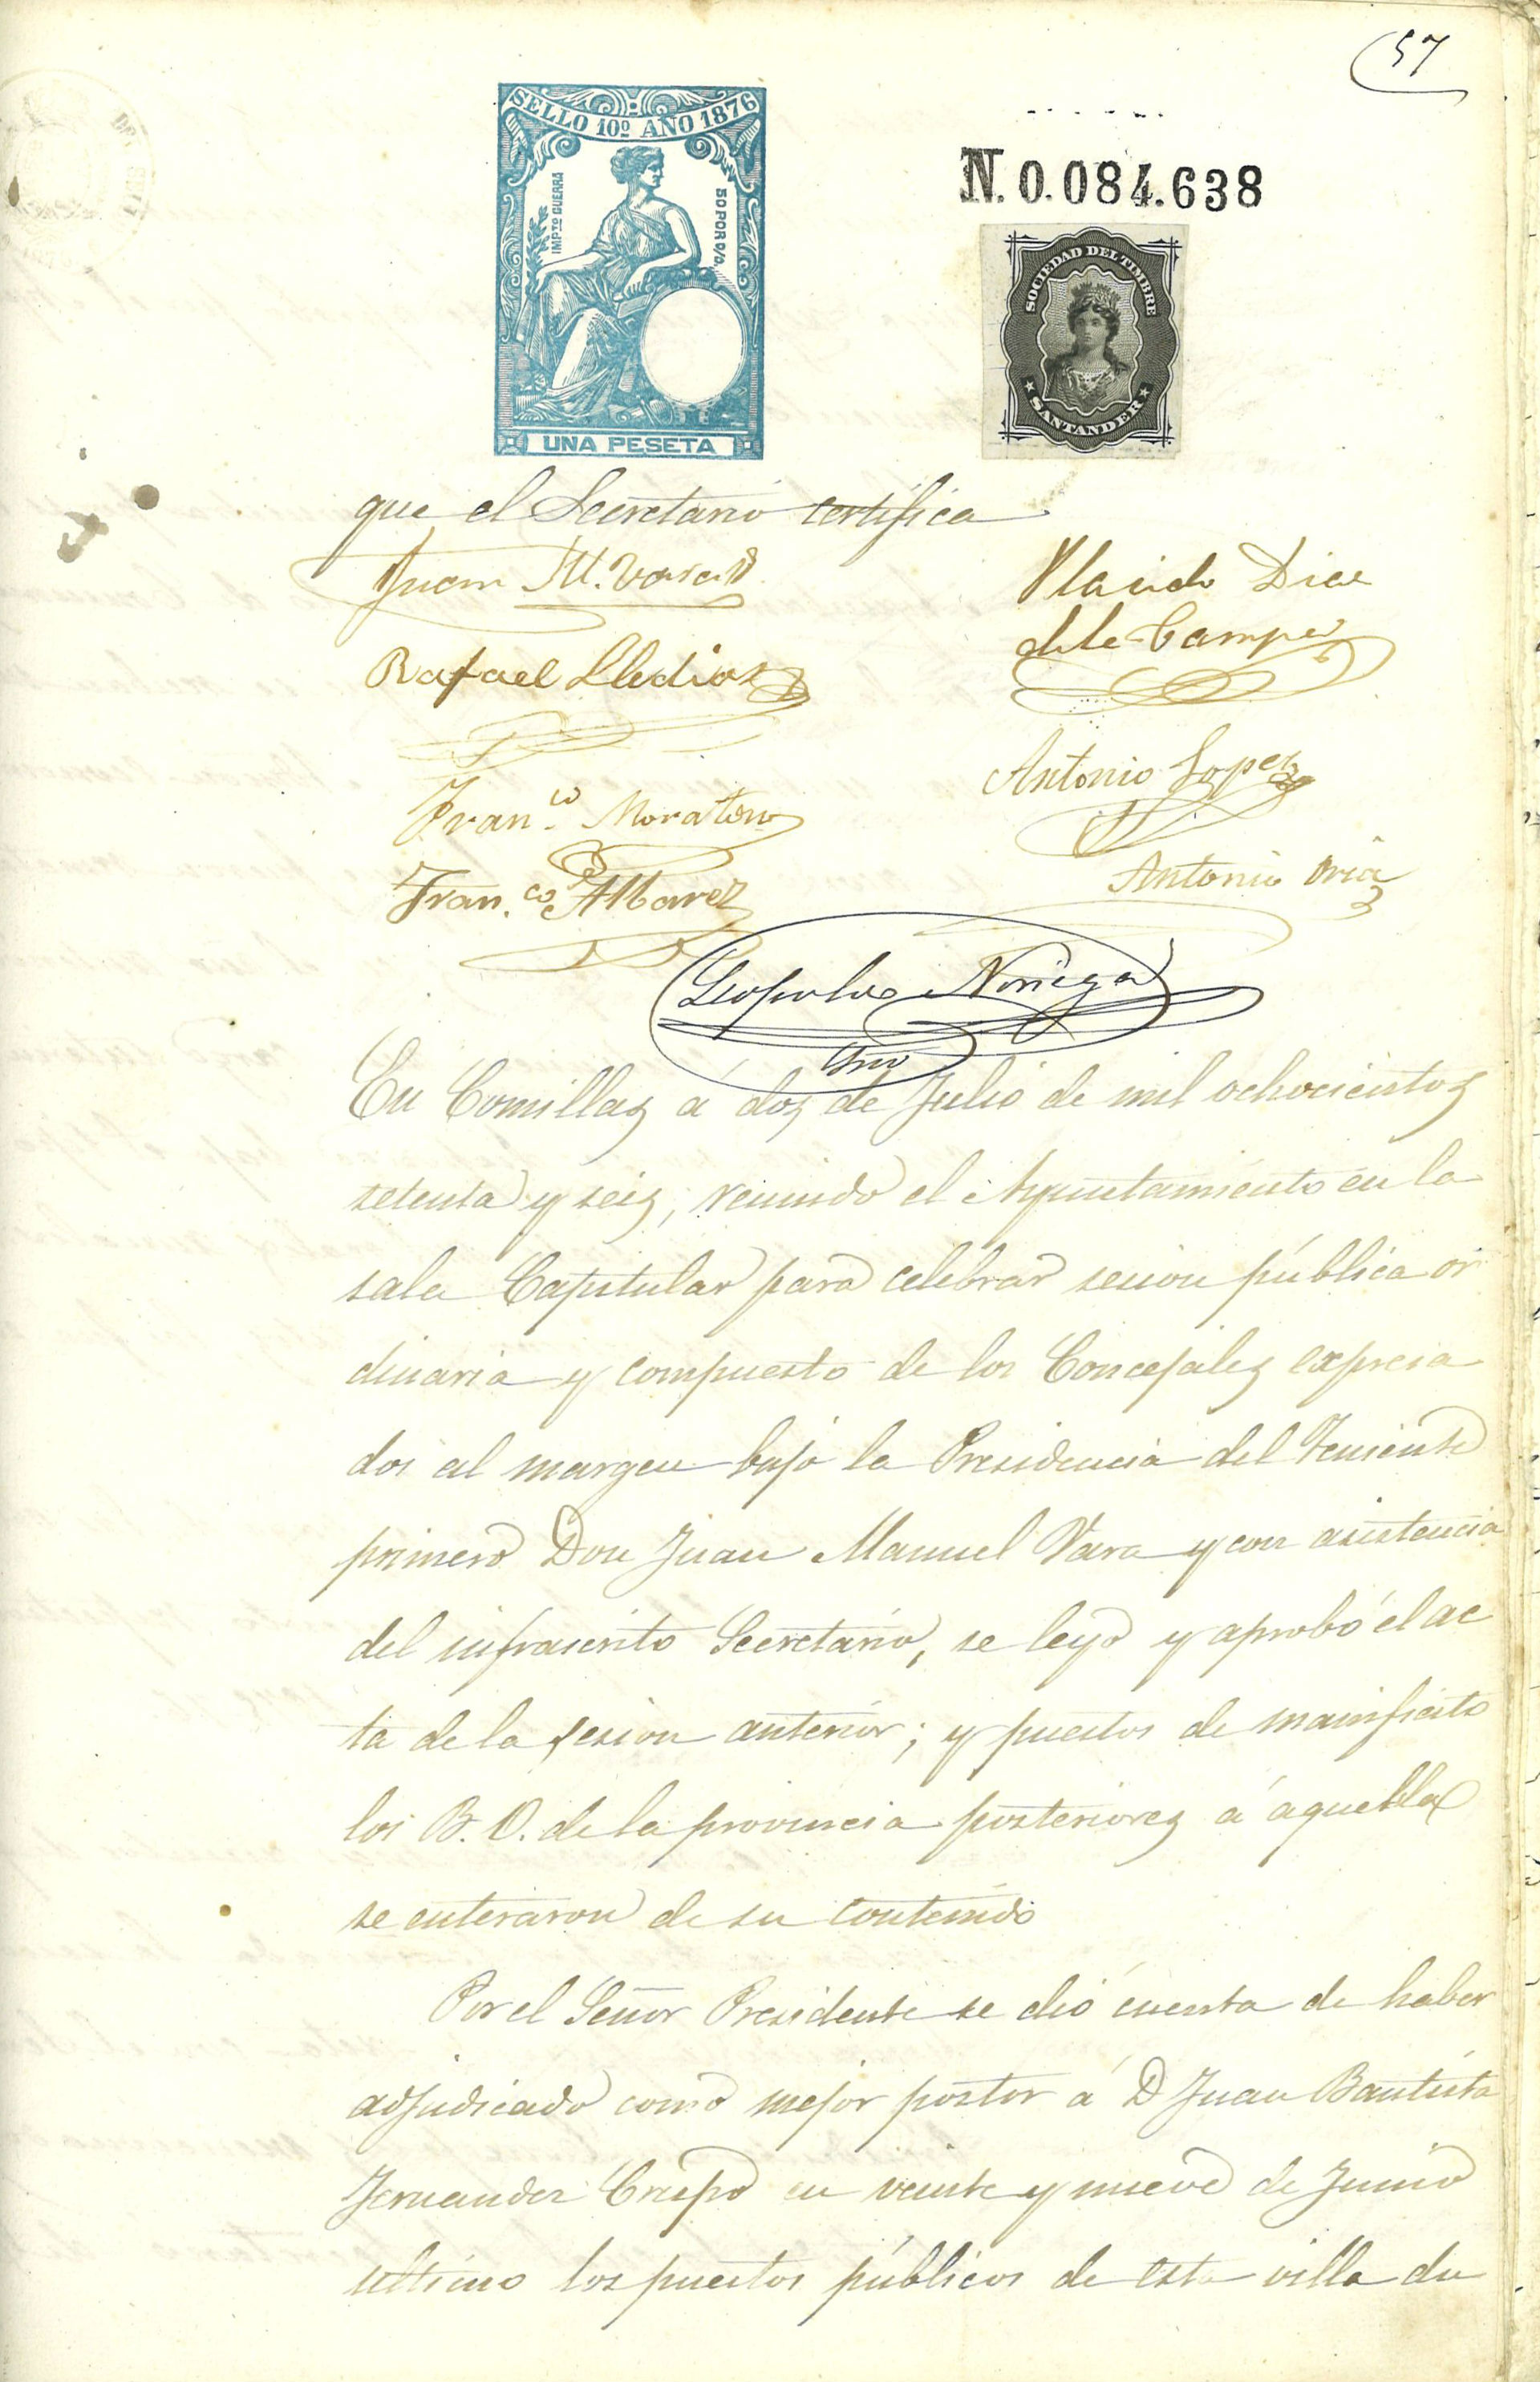 57
SELLO 10º AÑO 1876
IMPTO GUERRA
50 POR 0/0.
UNA PESETA
N. 0.084.638
SOCIEDAD DEL TIMBRE
SANTANDER
que el Secretario certifica
Juan M. Vara
Placido Diaz
de la Campa
Rafael Lledias
Antonio Lopez
Fran.co Moraton
Antonio Oria
Fran.co Albarez
Leopoldo Noriega
Srio
En Comillas á dos de Julio de mil ochocientos
setenta y seis, reunido el Ayuntamiento en la
sala Capitular para celebrar sesion pública or
dinaria y compuesto de los Concejales expresa
dos al margen bajo la Presidencia del Teniente
primero Don Juan Manuel Vara y con asistencia
del infrascrito Secretario, se leyo y aprobó el ac
ta de la sesion anterior; y puestos de manifiesto
los B. O. de la provincia posteriores á aquella
se enteraron de su contenido
Por el Señor Presidente se dió cuenta de haber
adjudicado como mejor postor á D Juan Bautista
Fernandez Crespo en veinte y nueve de Junio
ultimo los puestos públicos de esta villa du